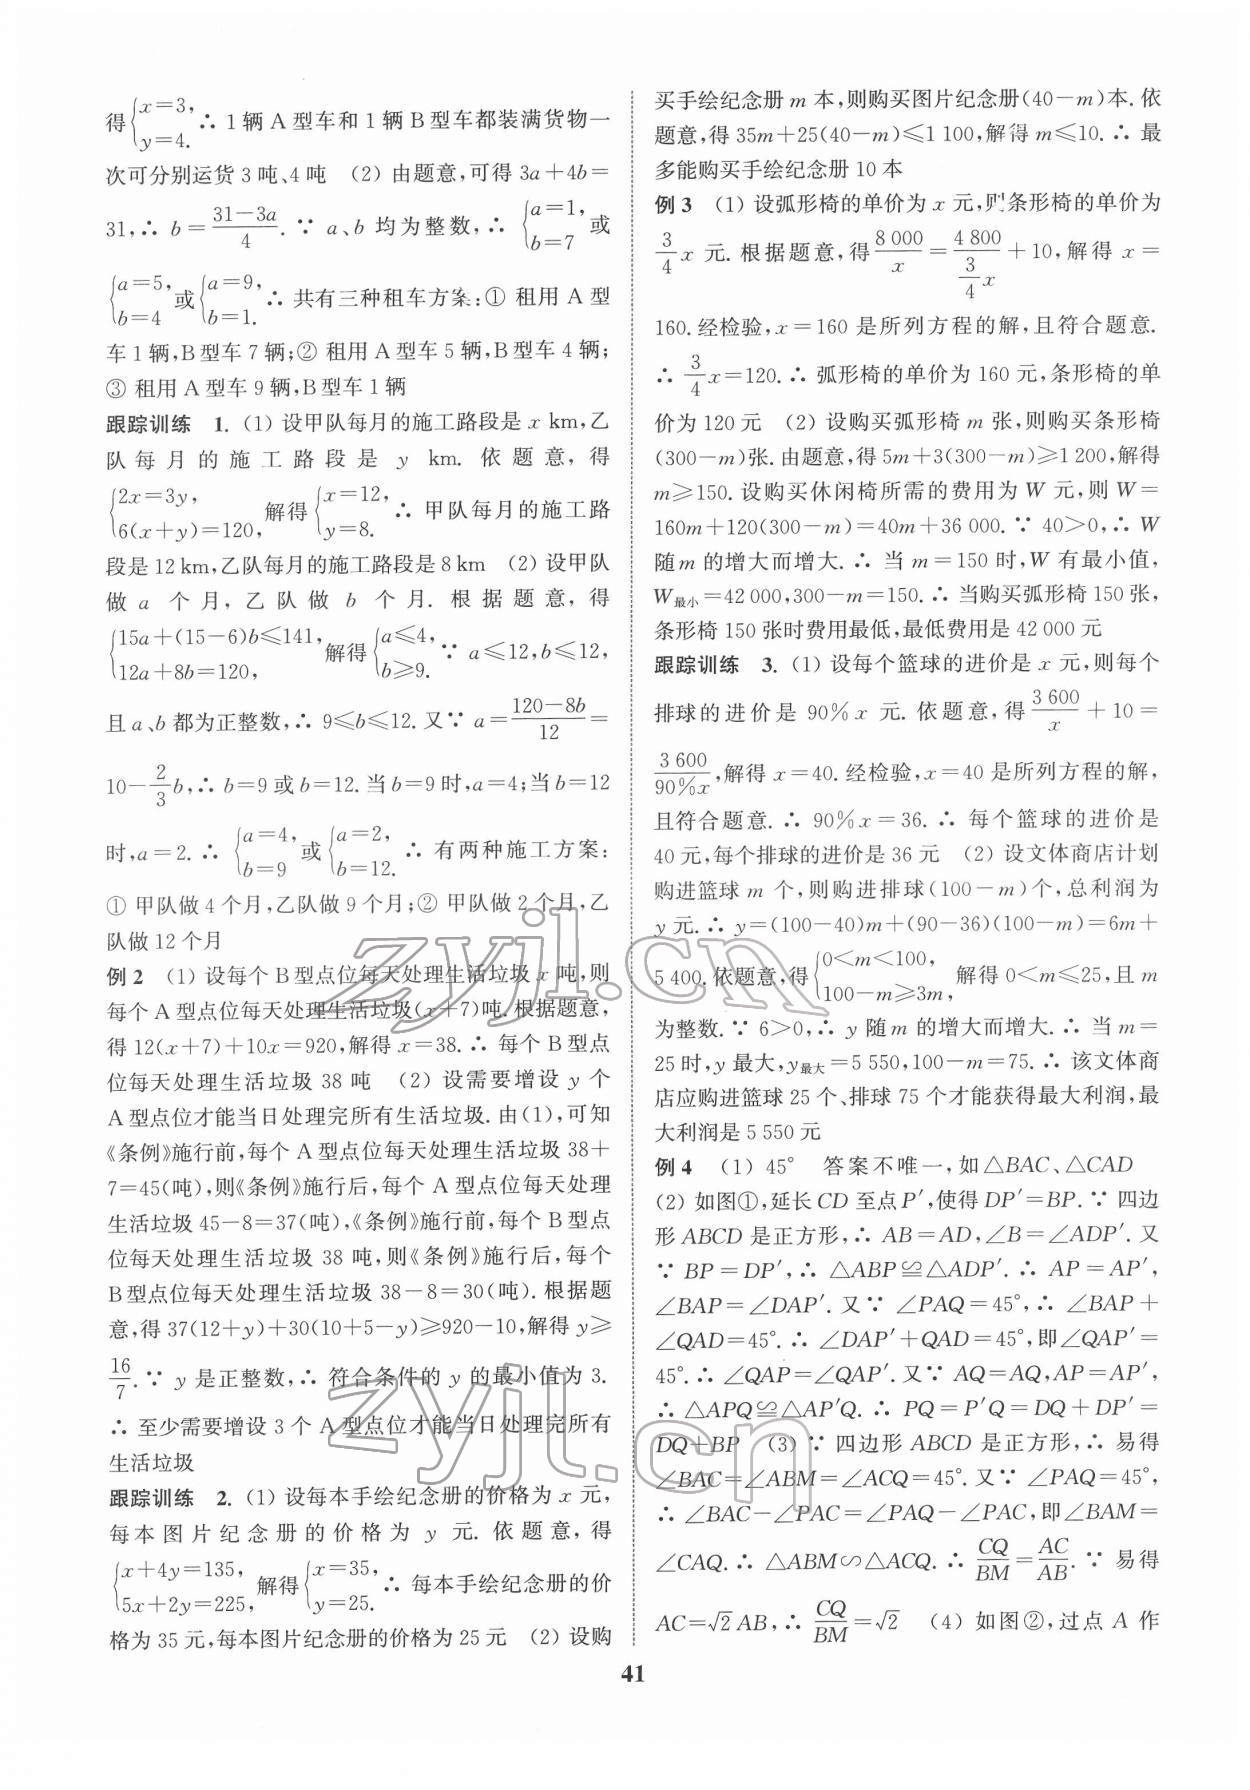 得{x=3, y=4. ∴ 1 辆 A 型车和 1 辆 B 型车都装满货物一
次可分别运货 3 吨、4 吨 (2) 由题意,可得 3a+4b=
31,∴ b=(31-3a)/4. ∵ a、b 均为整数,∴ {a=1, b=7 或
{a=5, b=4 或{a=9, b=1. ∴ 共有三种租车方案:① 租用 A 型
车 1 辆,B 型车 7 辆;② 租用 A 型车 5 辆,B 型车 4 辆;
③ 租用 A 型车 9 辆,B 型车 1 辆
跟踪训练 1. (1) 设甲队每月的施工路段是 x km,乙
队每月的施工路段是 y km. 依题意,得
{2x=3y, 6(x+y)=120, 解得{x=12, y=8. ∴ 甲队每月的施工路
段是 12 km,乙队每月的施工路段是 8 km (2) 设甲队
做 a 个月,乙队做 b 个月. 根据题意,得
{15a+(15-6)b≤141, 12a+8b=120, 解得{a≤4, b≥9. ∵ a≤12,b≤12,
且 a、b 都为正整数,∴ 9≤b≤12. 又∵ a=(120-8b)/12=
10-2/3b,∴ b=9 或 b=12. 当 b=9 时,a=4;当 b=12
时,a=2. ∴ {a=4, b=9 或{a=2, b=12. ∴ 有两种施工方案:
① 甲队做 4 个月,乙队做 9 个月;② 甲队做 2 个月,乙
队做 12 个月
例 2 (1) 设每个 B 型点位每天处理生活垃圾 x 吨,则
每个 A 型点位每天处理生活垃圾(x+7)吨. 根据题意,
得 12(x+7)+10x=920,解得 x=38. ∴ 每个 B 型点
位每天处理生活垃圾 38 吨 (2) 设需要增设 y 个
A 型点位才能当日处理完所有生活垃圾. 由(1),可知
《条例》施行前,每个 A 型点位每天处理生活垃圾 38+
7=45(吨),则《条例》施行后,每个 A 型点位每天处理
生活垃圾 45-8=37(吨),《条例》施行前,每个 B 型点
位每天处理生活垃圾 38 吨,则《条例》施行后,每个
B 型点位每天处理生活垃圾 38-8=30(吨). 根据题
意,得 37(12+y)+30(10+5-y)≥920-10,解得 y≥
16/7. ∵ y 是正整数,∴ 符合条件的 y 的最小值为 3.
∴ 至少需要增设 3 个 A 型点位才能当日处理完所有
生活垃圾
跟踪训练 2. (1) 设每本手绘纪念册的价格为 x 元,
每本图片纪念册的价格为 y 元. 依题意,得
{x+4y=135, 5x+2y=225, 解得{x=35, y=25. ∴ 每本手绘纪念册的价
格为 35 元,每本图片纪念册的价格为 25 元 (2) 设购
买手绘纪念册 m 本,则购买图片纪念册(40-m)本. 依
题意,得 35m+25(40-m)≤1 100,解得 m≤10. ∴ 最
多能购买手绘纪念册 10 本
例 3 (1) 设弧形椅的单价为 x 元,则条形椅的单价为
3/4x 元. 根据题意,得 8 000/x=4 800/(3/4x)+10,解得 x=
160. 经检验,x=160 是所列方程的解,且符合题意.
∴ 3/4x=120. ∴ 弧形椅的单价为 160 元,条形椅的单
价为 120 元 (2) 设购买弧形椅 m 张,则购买条形椅
(300-m)张. 由题意,得 5m+3(300-m)≥1 200,解得
m≥150. 设购买休闲椅所需的费用为 W 元,则 W=
160m+120(300-m)=40m+36 000. ∵ 40>0,∴ W
随 m 的增大而增大. ∴ 当 m=150 时,W 有最小值,
W最小=42 000,300-m=150. ∴ 当购买弧形椅 150 张,
条形椅 150 张时费用最低,最低费用是 42 000 元
跟踪训练 3. (1) 设每个篮球的进价是 x 元,则每个
排球的进价是 90%x 元. 依题意,得 3 600/x+10=
3 600/90%x,解得 x=40. 经检验,x=40 是所列方程的解,
且符合题意. ∴ 90%x=36. ∴ 每个篮球的进价是
40 元,每个排球的进价是 36 元 (2) 设文体商店计划
购进篮球 m 个,则购进排球(100-m)个,总利润为
y 元. ∴ y=(100-40)m+(90-36)(100-m)=6m+
5 400. 依题意,得{0<m<100, 100-m≥3m, 解得 0<m≤25,且 m
为整数. ∵ 6>0,∴ y 随 m 的增大而增大. ∴ 当 m=
25 时,y 最大,y最大=5 550,100-m=75. ∴ 该文体商
店应购进篮球 25 个、排球 75 个才能获得最大利润,最
大利润是 5 550 元
例 4 (1) 45° 答案不唯一,如△BAC、△CAD
(2) 如图①,延长 CD 至点 P′,使得 DP′=BP. ∵ 四边
形 ABCD 是正方形,∴ AB=AD,∠B=∠ADP′. 又
∵ BP=DP′,∴ △ABP≌△ADP′. ∴ AP=AP′,
∠BAP=∠DAP′. 又∵ ∠PAQ=45°,∴ ∠BAP+
∠QAD=45°. ∴ ∠DAP′+QAD=45°,即∠QAP′=
45°. ∴ ∠QAP=∠QAP′. 又∵ AQ=AQ,AP=AP′,
∴ △APQ≌△AP′Q. ∴ PQ=P′Q=DQ+DP′=
DQ+BP (3) ∵ 四边形 ABCD 是正方形,∴ 易得
∠BAC=∠ABM=∠ACQ=45°. 又∵ ∠PAQ=45°,
∴ ∠BAC-∠PAC=∠PAQ-∠PAC,即∠BAM=
∠CAQ. ∴ △ABM∽△ACQ. ∴ CQ/BM=AC/AB. ∵ 易得
AC=√2AB,∴ CQ/BM=√2 (4) 如图②,过点 A 作
41
zyjl.cn
zyjl.cn